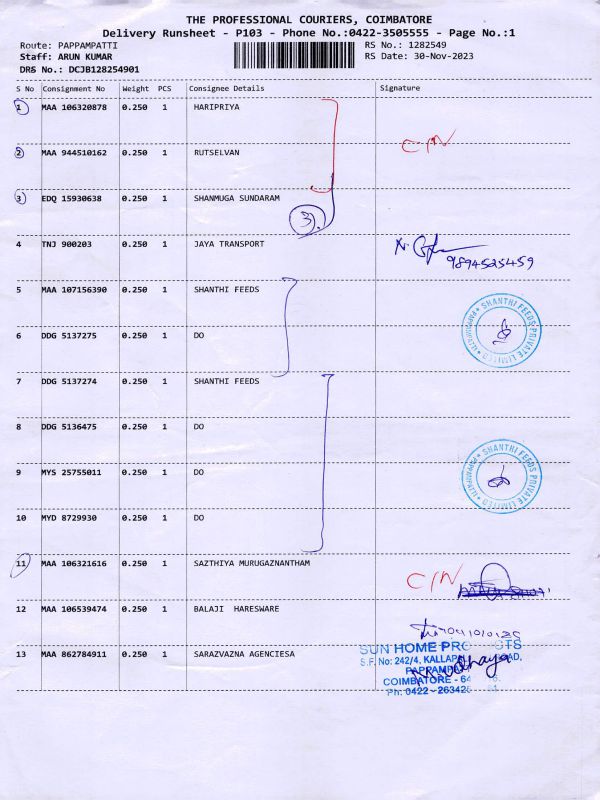 THE PROFESSIONAL COURIERS, COIMBATORE
Delivery Runsheet - P103 - Phone No.:0422-3505555 - Page No.:1
Route: PAPPAMPATTI RS No.: 1282549
Staff: ARUN KUMAR RS Date: 30-Nov-2023
DRS No.: DCJB128254901
S No Consignment No Weight PCS Consignee Details Signature
1 MAA 106320878 0.250 1 HARIPRIYA
C/N
2 MAA 944510162 0.250 1 RUTSELVAN
3 EDQ 15930638 0.250 1 SHANMUGA SUNDARAM
3).
4 TNJ 900203 0.250 1 JAYA TRANSPORT
9894525459
5 MAA 107156390 0.250 1 SHANTHI FEEDS
SHANTHI FEEDS PRIVATE LIMITED
6 DDG 5137275 0.250 1 DO
7 DDG 5137274 0.250 1 SHANTHI FEEDS
8 DDG 5136475 0.250 1 DO
SHANTHI FEEDS PRIVATE LIMITED
9 MYS 25755011 0.250 1 DO
10 MYD 8729930 0.250 1 DO
11 MAA 106321616 0.250 1 SAZTHIYA MURUGAZNANTHAM
C/N
12 MAA 106539474 0.250 1 BALAJI HARESWARE
13 MAA 862784911 0.250 1 SARAZVAZNA AGENCIESA
SUN HOME
S.F. No: 242/4,
COIMBATORE - 64
Ph: 0422 - 263425